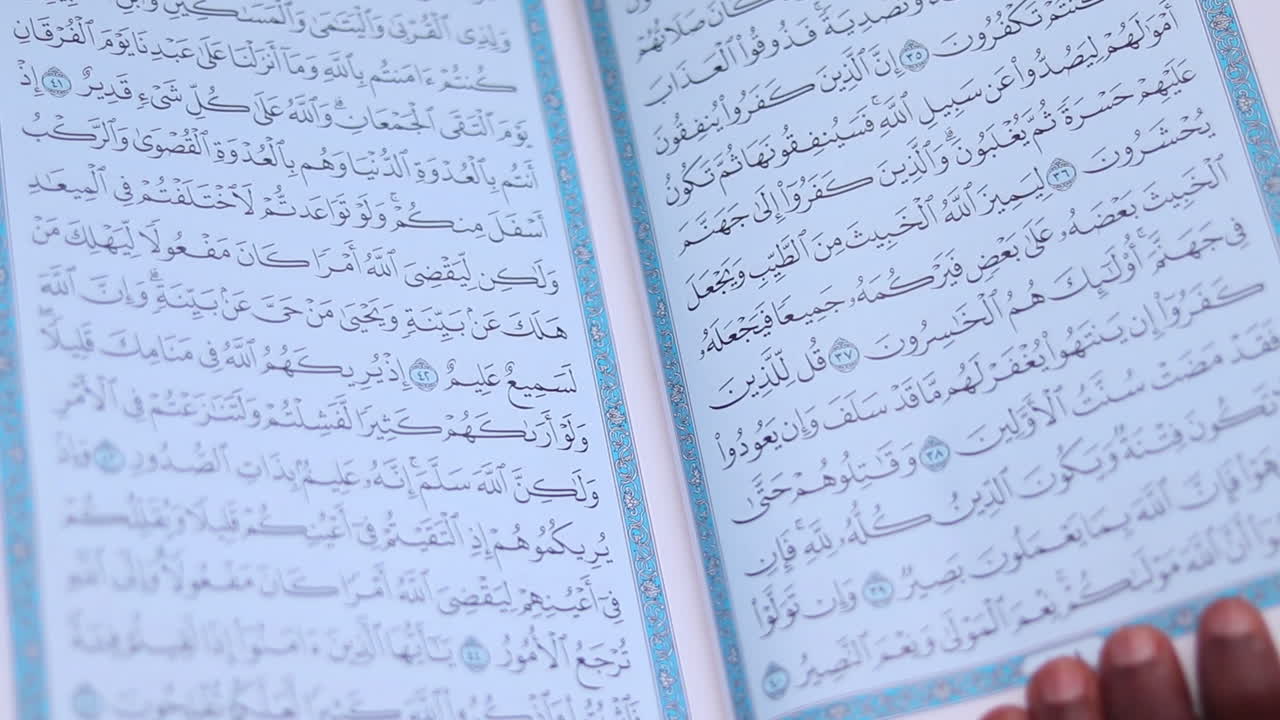 كَانَ صَلَاتُهُمْ
وَتَصْدِيَةً ۚ فَذُوقُوا۟ ٱلْعَذَابَ
كُنتُمْ تَكْفُرُونَ ٣٥ إِنَّ ٱلَّذِينَ كَفَرُوا۟ يُنفِقُونَ
أَمْوَٰلَهُمْ لِيَصُدُّوا۟ عَن سَبِيلِ ٱللَّهِ ۚ فَسَيُنفِقُونَهَا ثُمَّ تَكُونُ
عَلَيْهِمْ حَسْرَةً ثُمَّ يُغْلَبُونَ ۗ وَٱلَّذِينَ كَفَرُوٓا۟ إِلَىٰ جَهَنَّمَ
يُحْشَرُونَ ٣٦ لِيَمِيزَ ٱللَّهُ ٱلْخَبِيثَ مِنَ ٱلطَّيِّبِ وَيَجْعَلَ
ٱلْخَبِيثَ بَعْضَهُۥ عَلَىٰ بَعْضٍ فَيَرْكُمَهُۥ جَمِيعًا فَيَجْعَلَهُۥ
فِى جَهَنَّمَ ۚ أُو۟لَٰٓئِكَ هُمُ ٱلْخَٰسِرُونَ ٣٧ قُل لِّلَّذِينَ
كَفَرُوٓا۟ إِن يَنتَهُوا۟ يُغْفَرْ لَهُم مَّا قَدْ سَلَفَ وَإِن يَعُودُوا۟
فَقَدْ مَضَتْ سُنَّتُ ٱلْأَوَّلِينَ ٣٨ وَقَٰتِلُوهُمْ حَتَّىٰ
تَكُونَ فِتْنَةٌ وَيَكُونَ ٱلدِّينُ كُلُّهُۥ لِلَّهِ ۚ فَإِنِ
فَإِنَّ ٱللَّهَ بِمَا يَعْمَلُونَ بَصِيرٌ ٣٩ وَإِن تَوَلَّوْا۟
أَنَّ ٱللَّهَ مَوْلَىٰكُمْ ۚ نِعْمَ ٱلْمَوْلَىٰ وَنِعْمَ ٱلنَّصِيرُ ٤٠
وَلِذِى ٱلْقُرْبَىٰ وَٱلْيَتَٰمَىٰ وَٱلْمَسَٰكِينِ وَٱبْنِ
كُنتُمْ ءَامَنتُم بِٱللَّهِ وَمَآ أَنزَلْنَا عَلَىٰ عَبْدِنَا يَوْمَ ٱلْفُرْقَانِ
يَوْمَ ٱلْتَقَى ٱلْجَمْعَانِ ۗ وَٱللَّهُ عَلَىٰ كُلِّ شَىْءٍ قَدِيرٌ ٤١ إِذْ
أَنتُم بِٱلْعُدْوَةِ ٱلدُّنْيَا وَهُم بِٱلْعُدْوَةِ ٱلْقُصْوَىٰ وَٱلرَّكْبُ
أَسْفَلَ مِنكُمْ ۚ وَلَوْ تَوَاعَدتُّمْ لَٱخْتَلَفْتُمْ فِى ٱلْمِيعَٰدِ
وَلَٰكِن لِّيَقْضِىَ ٱللَّهُ أَمْرًا كَانَ مَفْعُولًا لِّيَهْلِكَ مَنْ
هَلَكَ عَنۢ بَيِّنَةٍ وَيَحْيَىٰ مَنْ حَىَّ عَنۢ بَيِّنَةٍ ۗ وَإِنَّ ٱللَّهَ
لَسَمِيعٌ عَلِيمٌ ٤٢ إِذْ يُرِيكَهُمُ ٱللَّهُ فِى مَنَامِكَ قَلِيلًا ۖ
وَلَوْ أَرَىٰكَهُمْ كَثِيرًا لَّفَشِلْتُمْ وَلَتَنَٰزَعْتُمْ فِى ٱلْأَمْرِ
وَلَٰكِنَّ ٱللَّهَ سَلَّمَ ۗ إِنَّهُۥ عَلِيمٌۢ بِذَاتِ ٱلصُّدُورِ ٤٣ وَإِذْ
يُرِيكُمُوهُمْ إِذِ ٱلْتَقَيْتُمْ فِىٓ أَعْيُنِكُمْ قَلِيلًا وَيُقَلِّلُكُمْ
فِىٓ أَعْيُنِهِمْ لِيَقْضِىَ ٱللَّهُ أَمْرًا كَانَ مَفْعُولًا ۗ وَإِلَى ٱللَّهِ
تُرْجَعُ ٱلْأُمُورُ ٤٤ يَٰٓأَيُّهَا ٱلَّذِينَ ءَامَنُوٓا۟ إِذَا لَقِيتُمْ فِئَةً